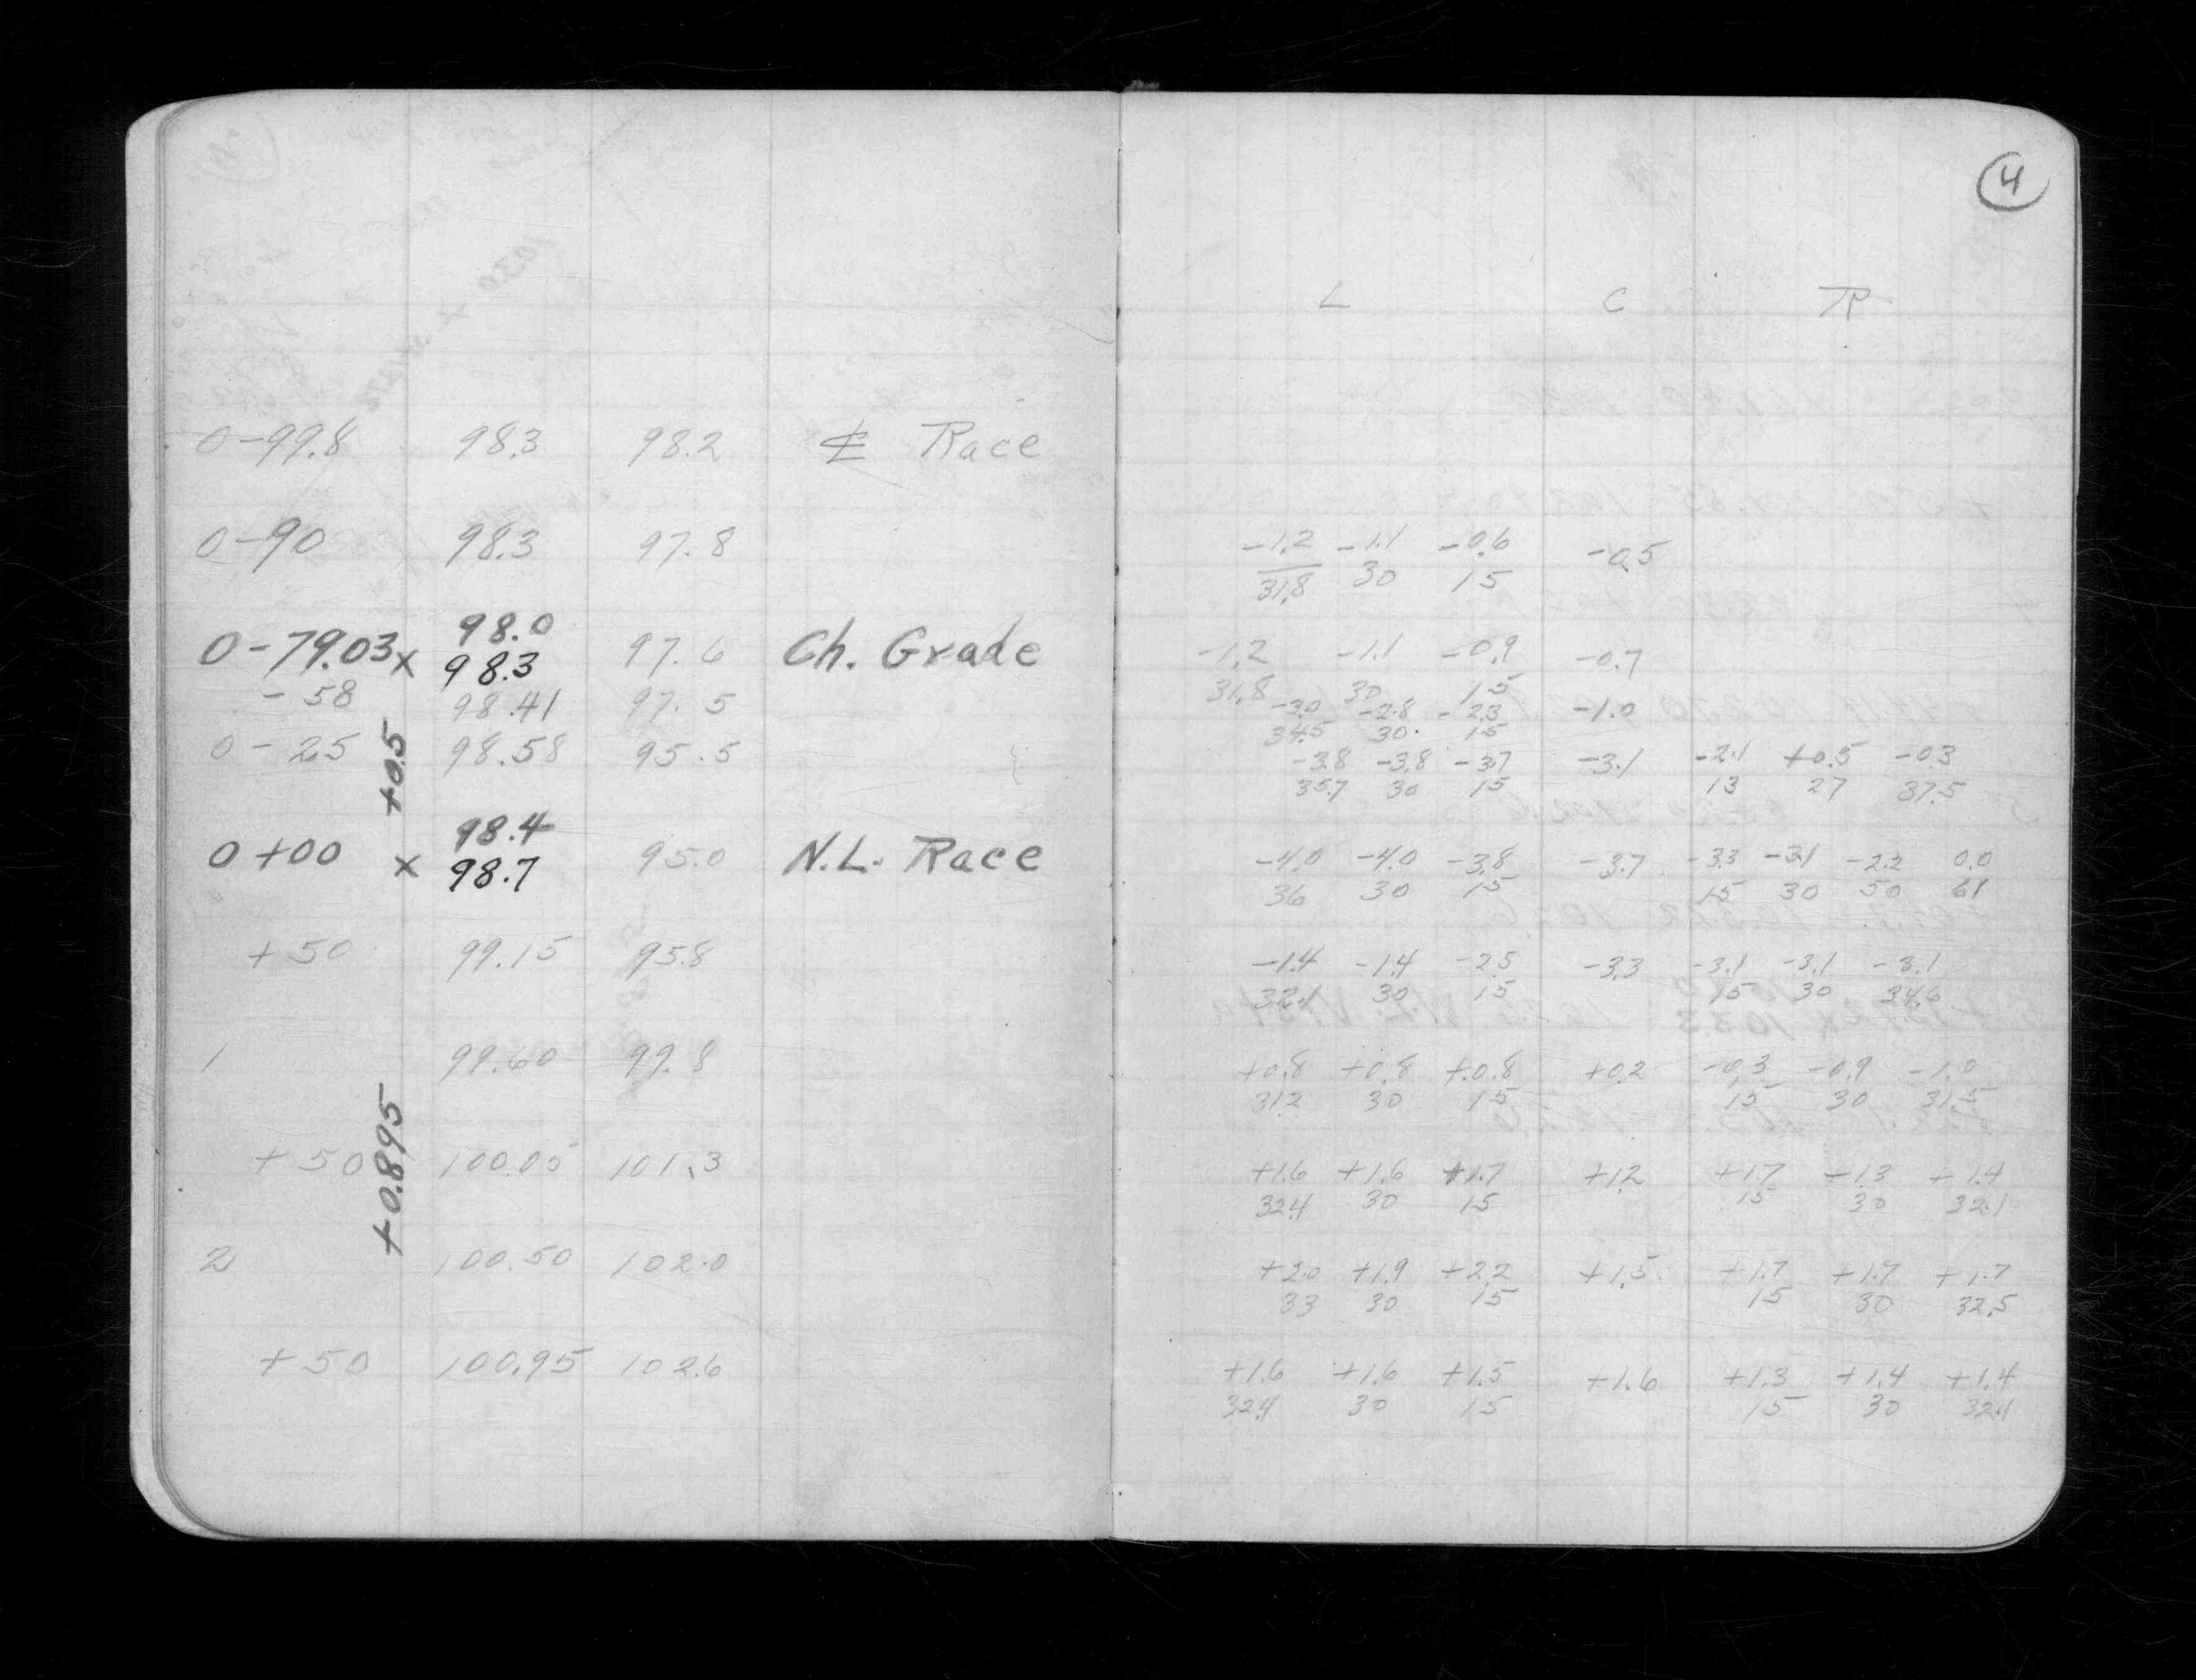 0-99.8 98.3 98.2 ℄ Race
0-90 98.3 97.8
98.0
0-79.03 x 98.3 97.6 Ch. Grade
-58 98.41 97.5
0-25 98.58 95.5
+0.5
98.4
0+00 x 98.7 95.0 N.L. Race
+50 99.15 95.8
1 99.60 99.8
+0.895
+50 100.05 101.3
2 100.50 102.0
+50 100.95 102.6
4
L C R
-1.2 -1.1 -0.6 -0.5
31.8 30 15
-1.2 -1.1 -0.9 -0.7
31.8 30 15
-3.0 -2.8 -2.3 -1.0
34.5 30 15
-3.8 -3.8 -3.7 -3.1 -2.1 +0.5 -0.3
35.7 30 15 13 27 37.5
-4.0 -4.0 -3.8 -3.7 -3.3 -3.1 -2.2 0.0
36 30 15 15 30 50 61
-1.4 -1.4 -2.5 -3.3 -3.1 -3.1 -3.1
32.1 30 15 15 30 34.6
+0.8 +0.8 +0.8 +0.2 -0.3 -0.9 -1.0
31.2 30 15 15 30 31.5
+1.6 +1.6 +1.7 +1.2 +1.7 +1.3 +1.4
32.4 30 15 15 30 32.1
+2.0 +1.9 +2.2 +1.5 +1.7 +1.7 +1.7
33 30 15 15 30 32.5
+1.6 +1.6 +1.5 +1.6 +1.3 +1.4 +1.4
32.4 30 15 15 30 32.1